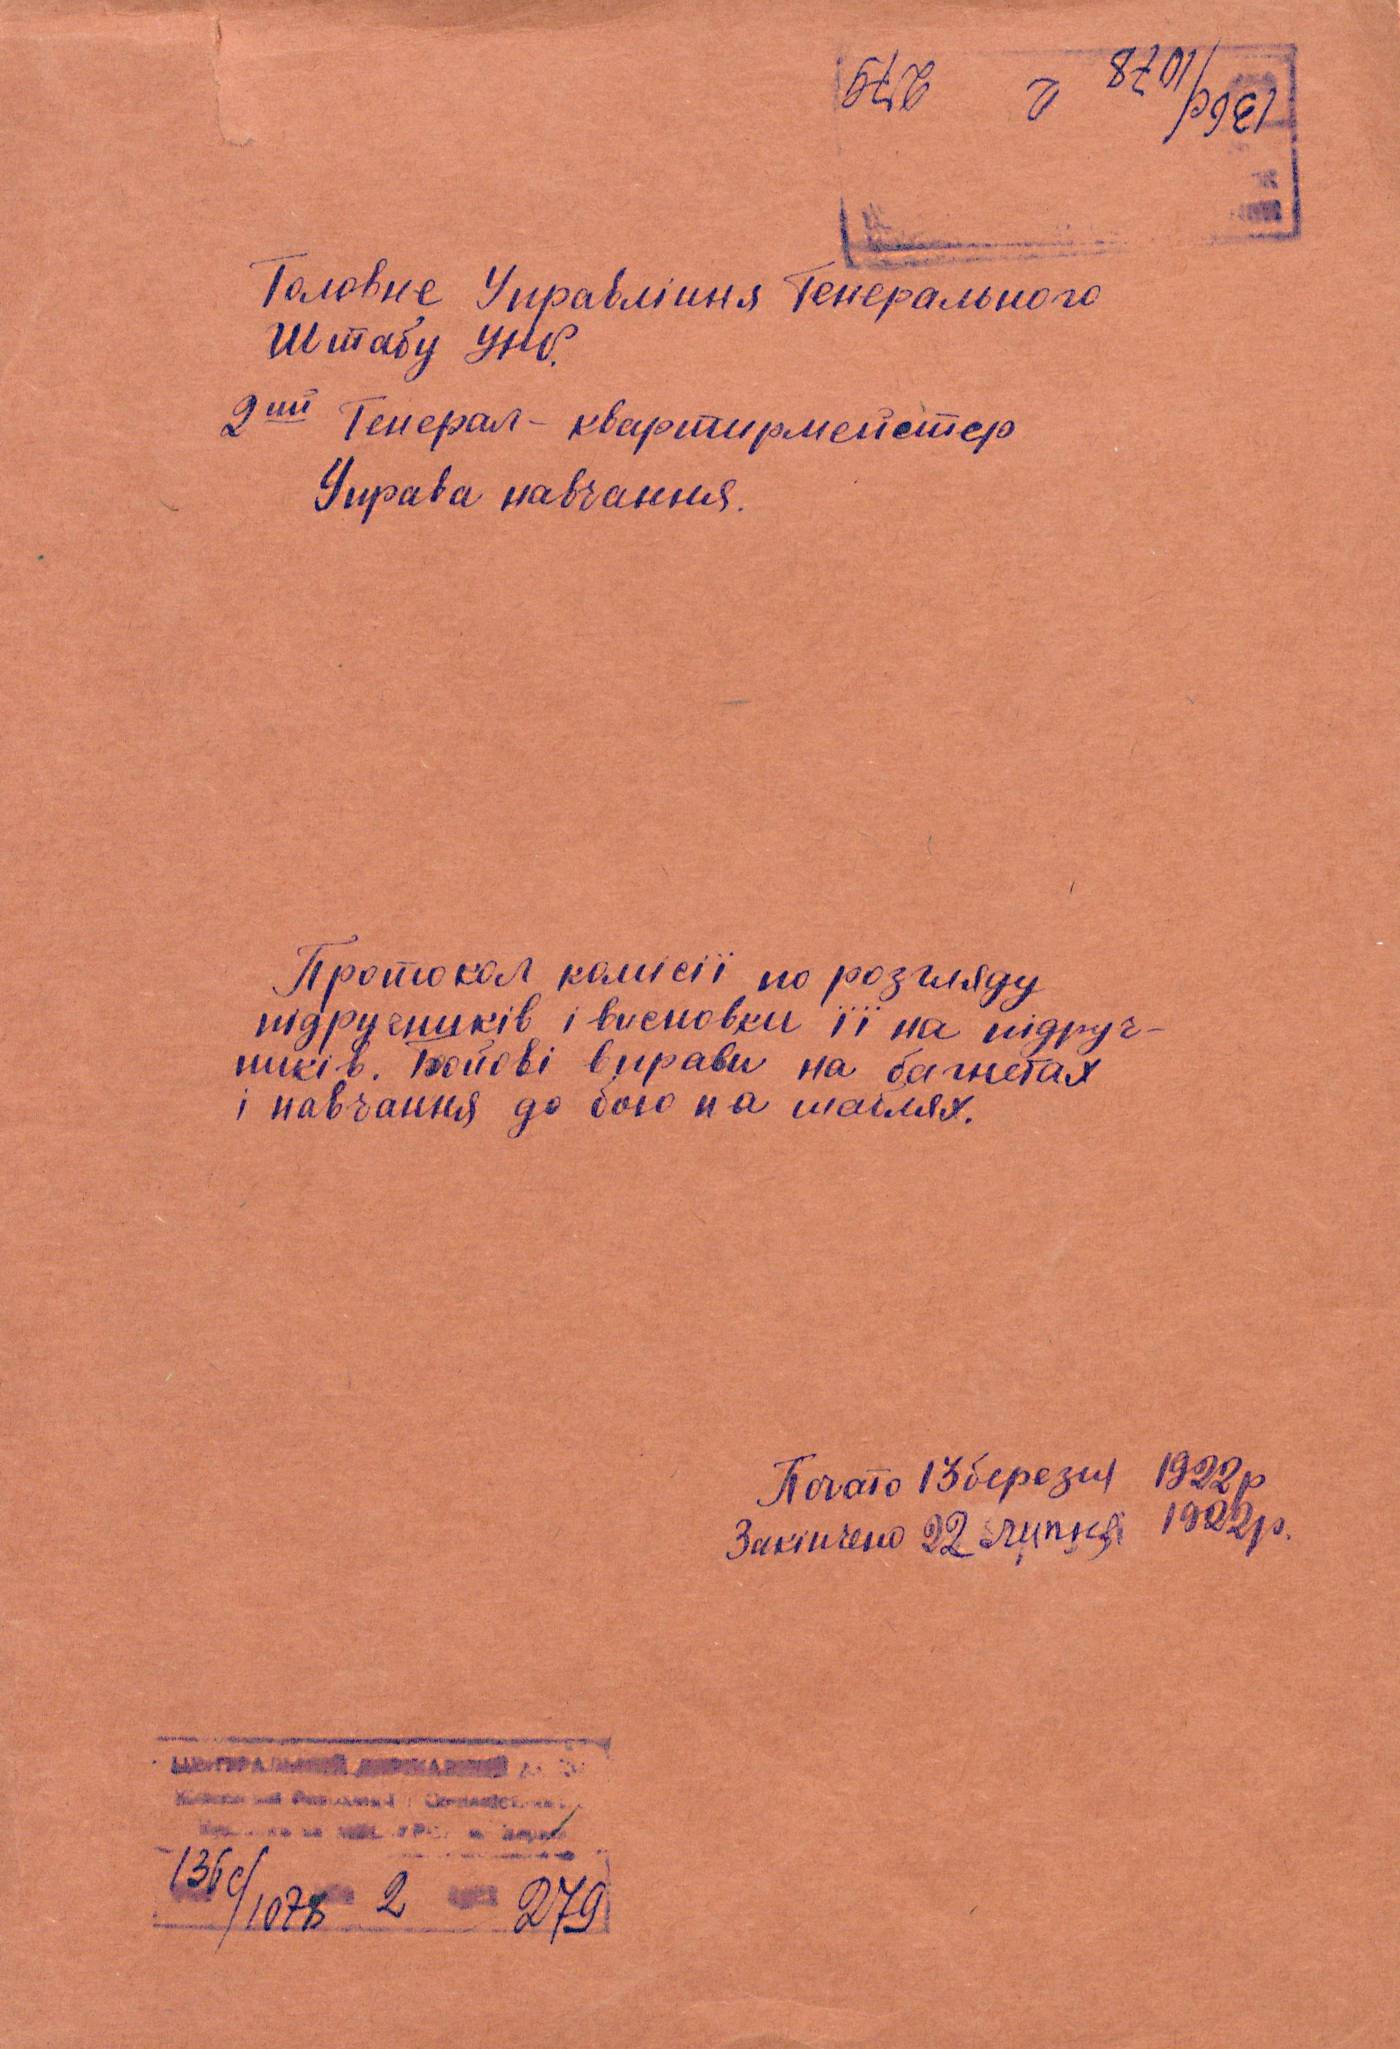 136с/1078 2 279
Головне Управління Генерального
Штабу УНР.
2ий Генерал-квартирмейстер
Управа навчання.
Протокол комісії по розгляду
підручників і висновки її на підруч-
ників. Бойові вправи на багнетах
і навчання до бою на шаблях.
Почато 13 березня 1922р
Закінчено 22 липня 1922р.
ЦЕНТРАЛЬНИЙ ДЕРЖАВНИЙ
136с/1078 2 279